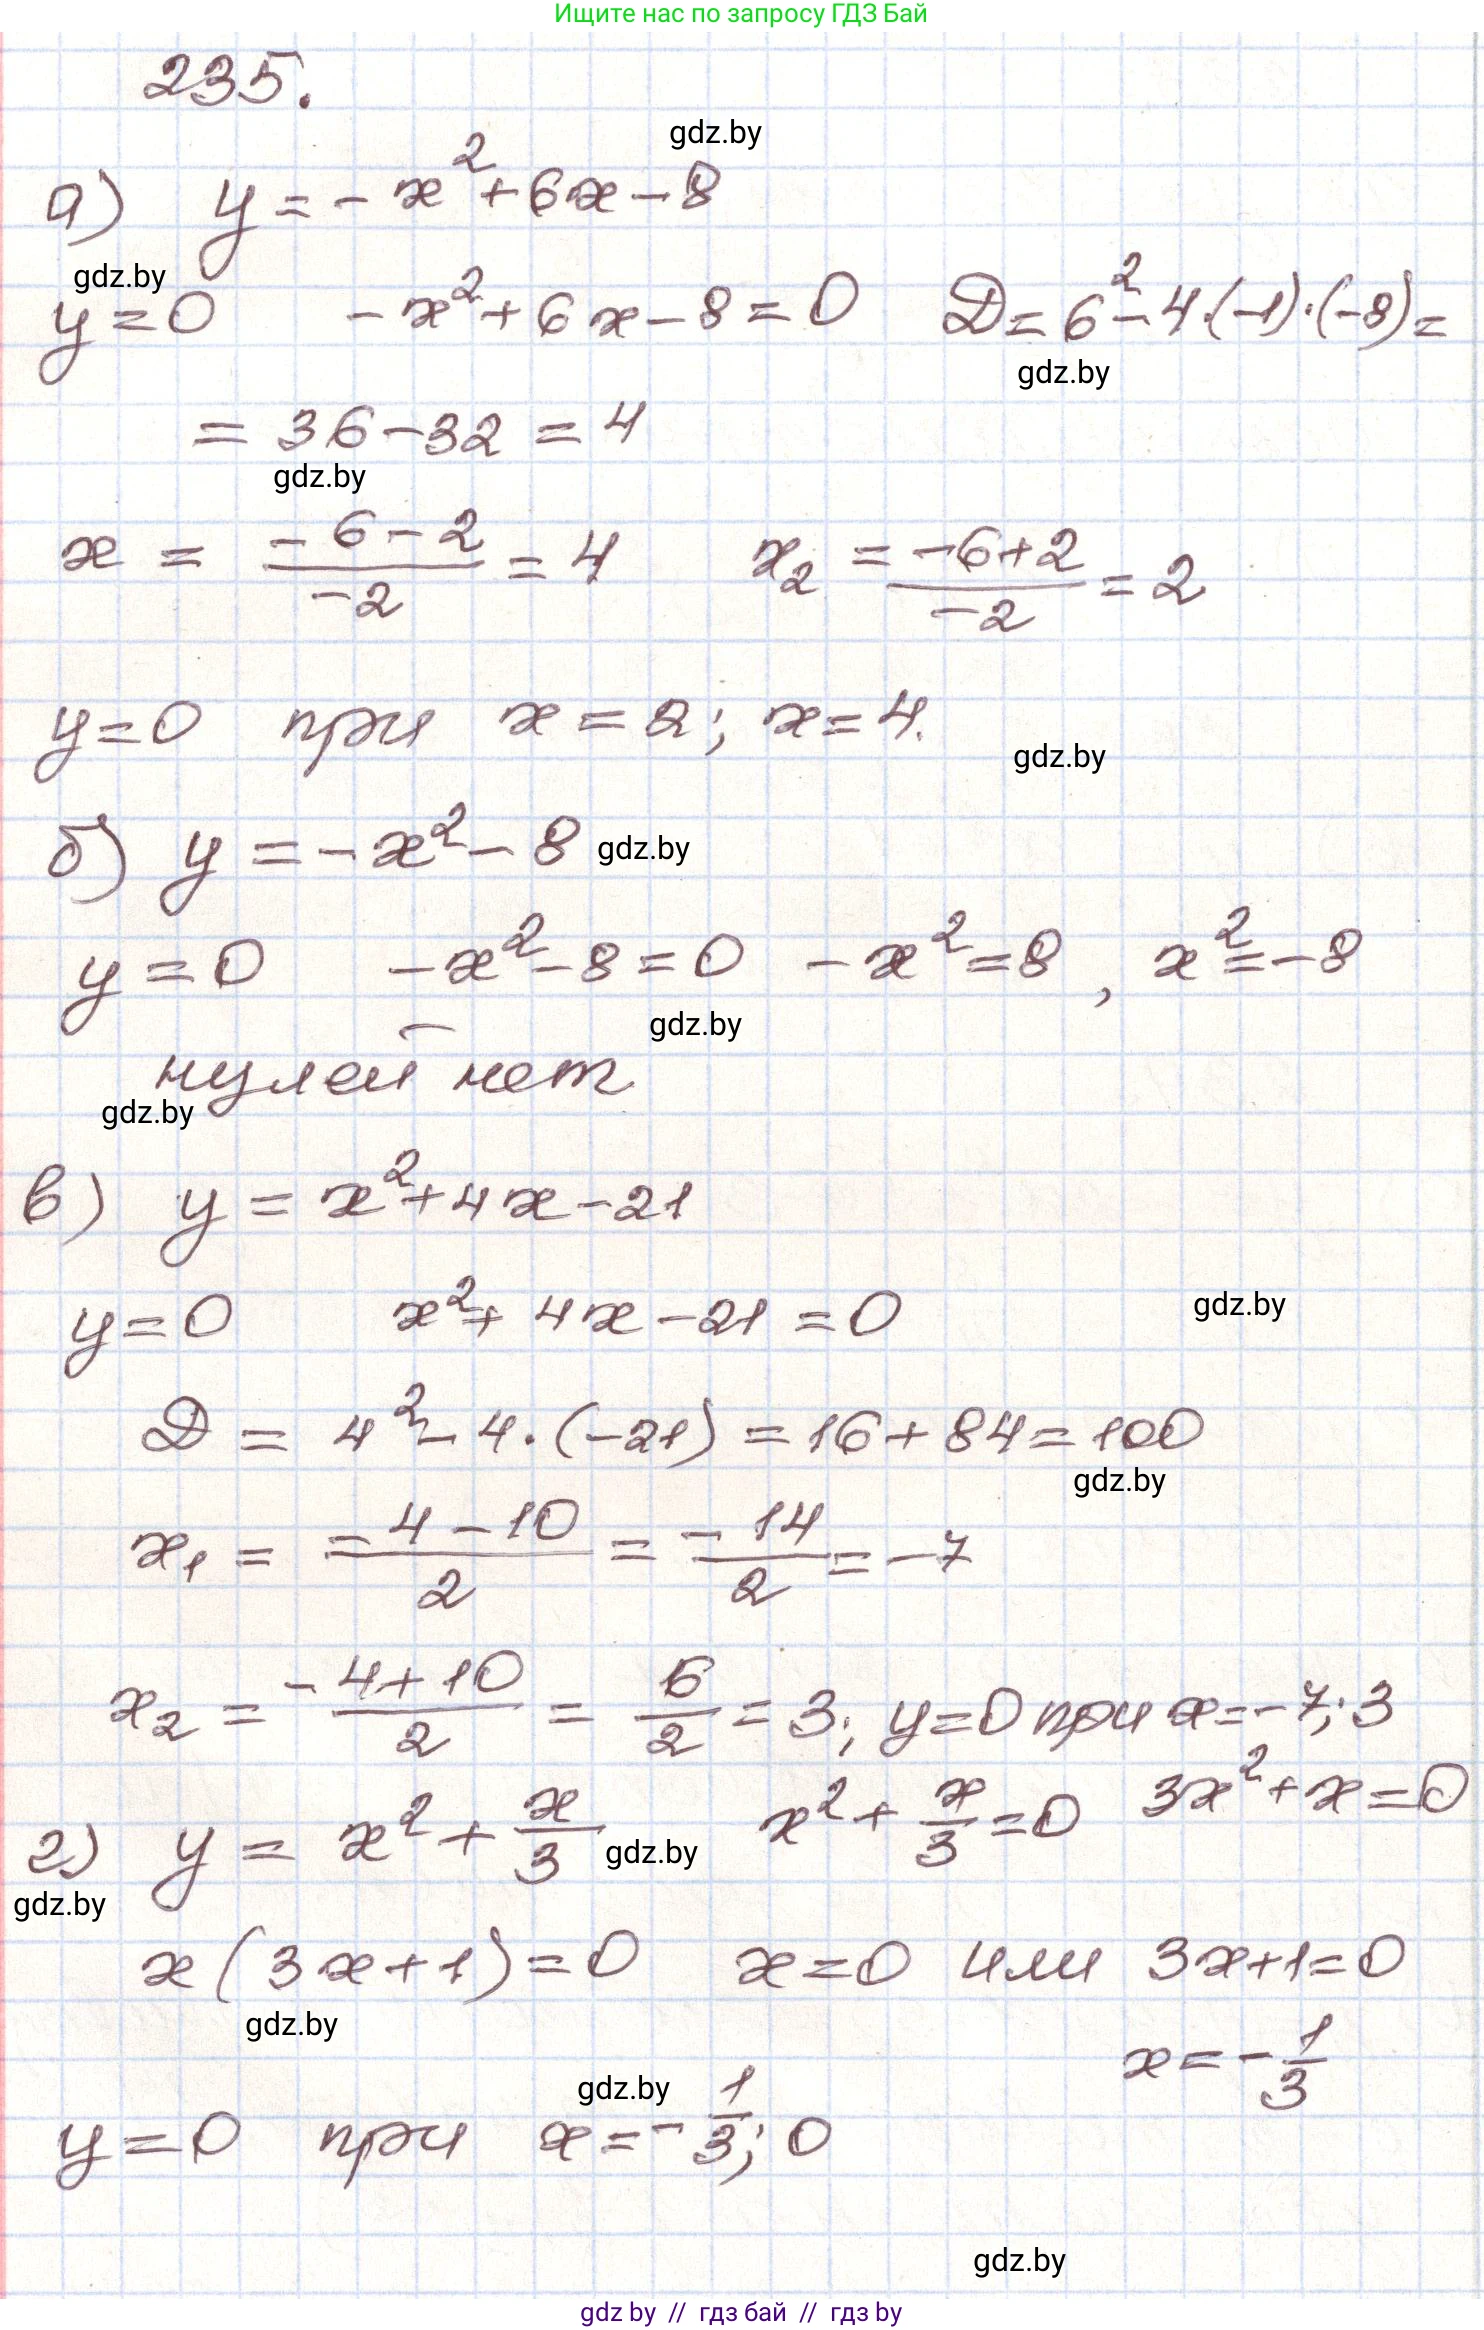 Ищите нас по запросу ГДЗ Бай
235.
gdz.by
а) y = -x² + 6x - 8
gdz.by
y = 0   -x² + 6x - 8 = 0   D = 6² - 4·(-1)·(-8) =
gdz.by
= 36 - 32 = 4
gdz.by
x = (-6-2)/(-2) = 4   x₂ = (-6+2)/(-2) = 2
y = 0 при x = 2; x = 4.
gdz.by
б) y = -x² - 8 gdz.by
y = 0   -x² - 8 = 0   -x² = 8, x² = -8
gdz.by
нулей нет
gdz.by
в) y = x² + 4x - 21
y = 0   x² + 4x - 21 = 0
gdz.by
D = 4² - 4·(-21) = 16 + 84 = 100
gdz.by
x₁ = (-4-10)/2 = -14/2 = -7
x₂ = (-4+10)/2 = 6/2 = 3; y = 0 при x = -7; 3
г) y = x² + x/3 gdz.by   x² + x/3 = 0   3x² + x = 0
gdz.by
x(3x+1) = 0   x = 0 или 3x+1 = 0
gdz.by
x = -1/3
gdz.by
y = 0 при x = -1/3; 0
gdz.by
gdz by // гдз бай // гдз by